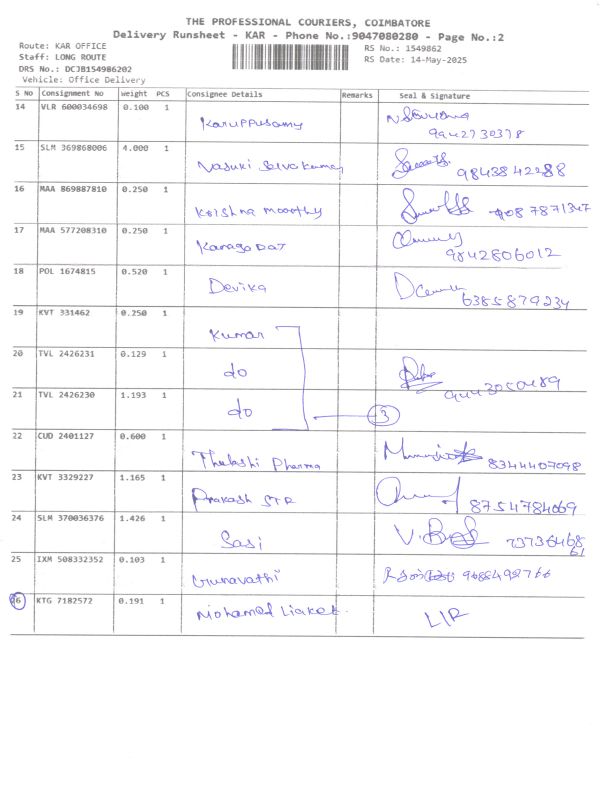 THE PROFESSIONAL COURIERS, COIMBATORE
Delivery Runsheet - KAR - Phone No.:9047080280 - Page No.:2
Route: KAR OFFICE
RS No.: 1549862
Staff: LONG ROUTE
RS Date: 14-May-2025
DRS No.: DCJB154986202
Vehicle: Office Delivery
S NO Consignment No Weight PCS Consignee Details Remarks Seal & Signature
14 VLR 600034698 0.100 1
Karuppusamy
9942730378
15 SLM 369868006 4.000 1
Vasuki Selvakumar 9843842288
16 MAA 869887810 0.250 1
Krishna moorthy 9087871347
17 MAA 577208310 0.250 1
Kanaga DAT
9842806012
18 POL 1674815 0.520 1
Devika
6385879234
19 KVT 331462 0.250 1
Kumar
20 TVL 2426231 0.129 1
do
9443050489
21 TVL 2426230 1.193 1
do 3
22 CUD 2401127 0.600 1
Thulashi Pharma 8344407098
23 KVT 3329227 1.165 1
Prakash STR 8754784069
24 SLM 370036376 1.426 1
Sasi
25 IXM 508332352 0.103 1
Gunavathi
26 KTG 7182572 0.191 1
Mohamed Liaket.